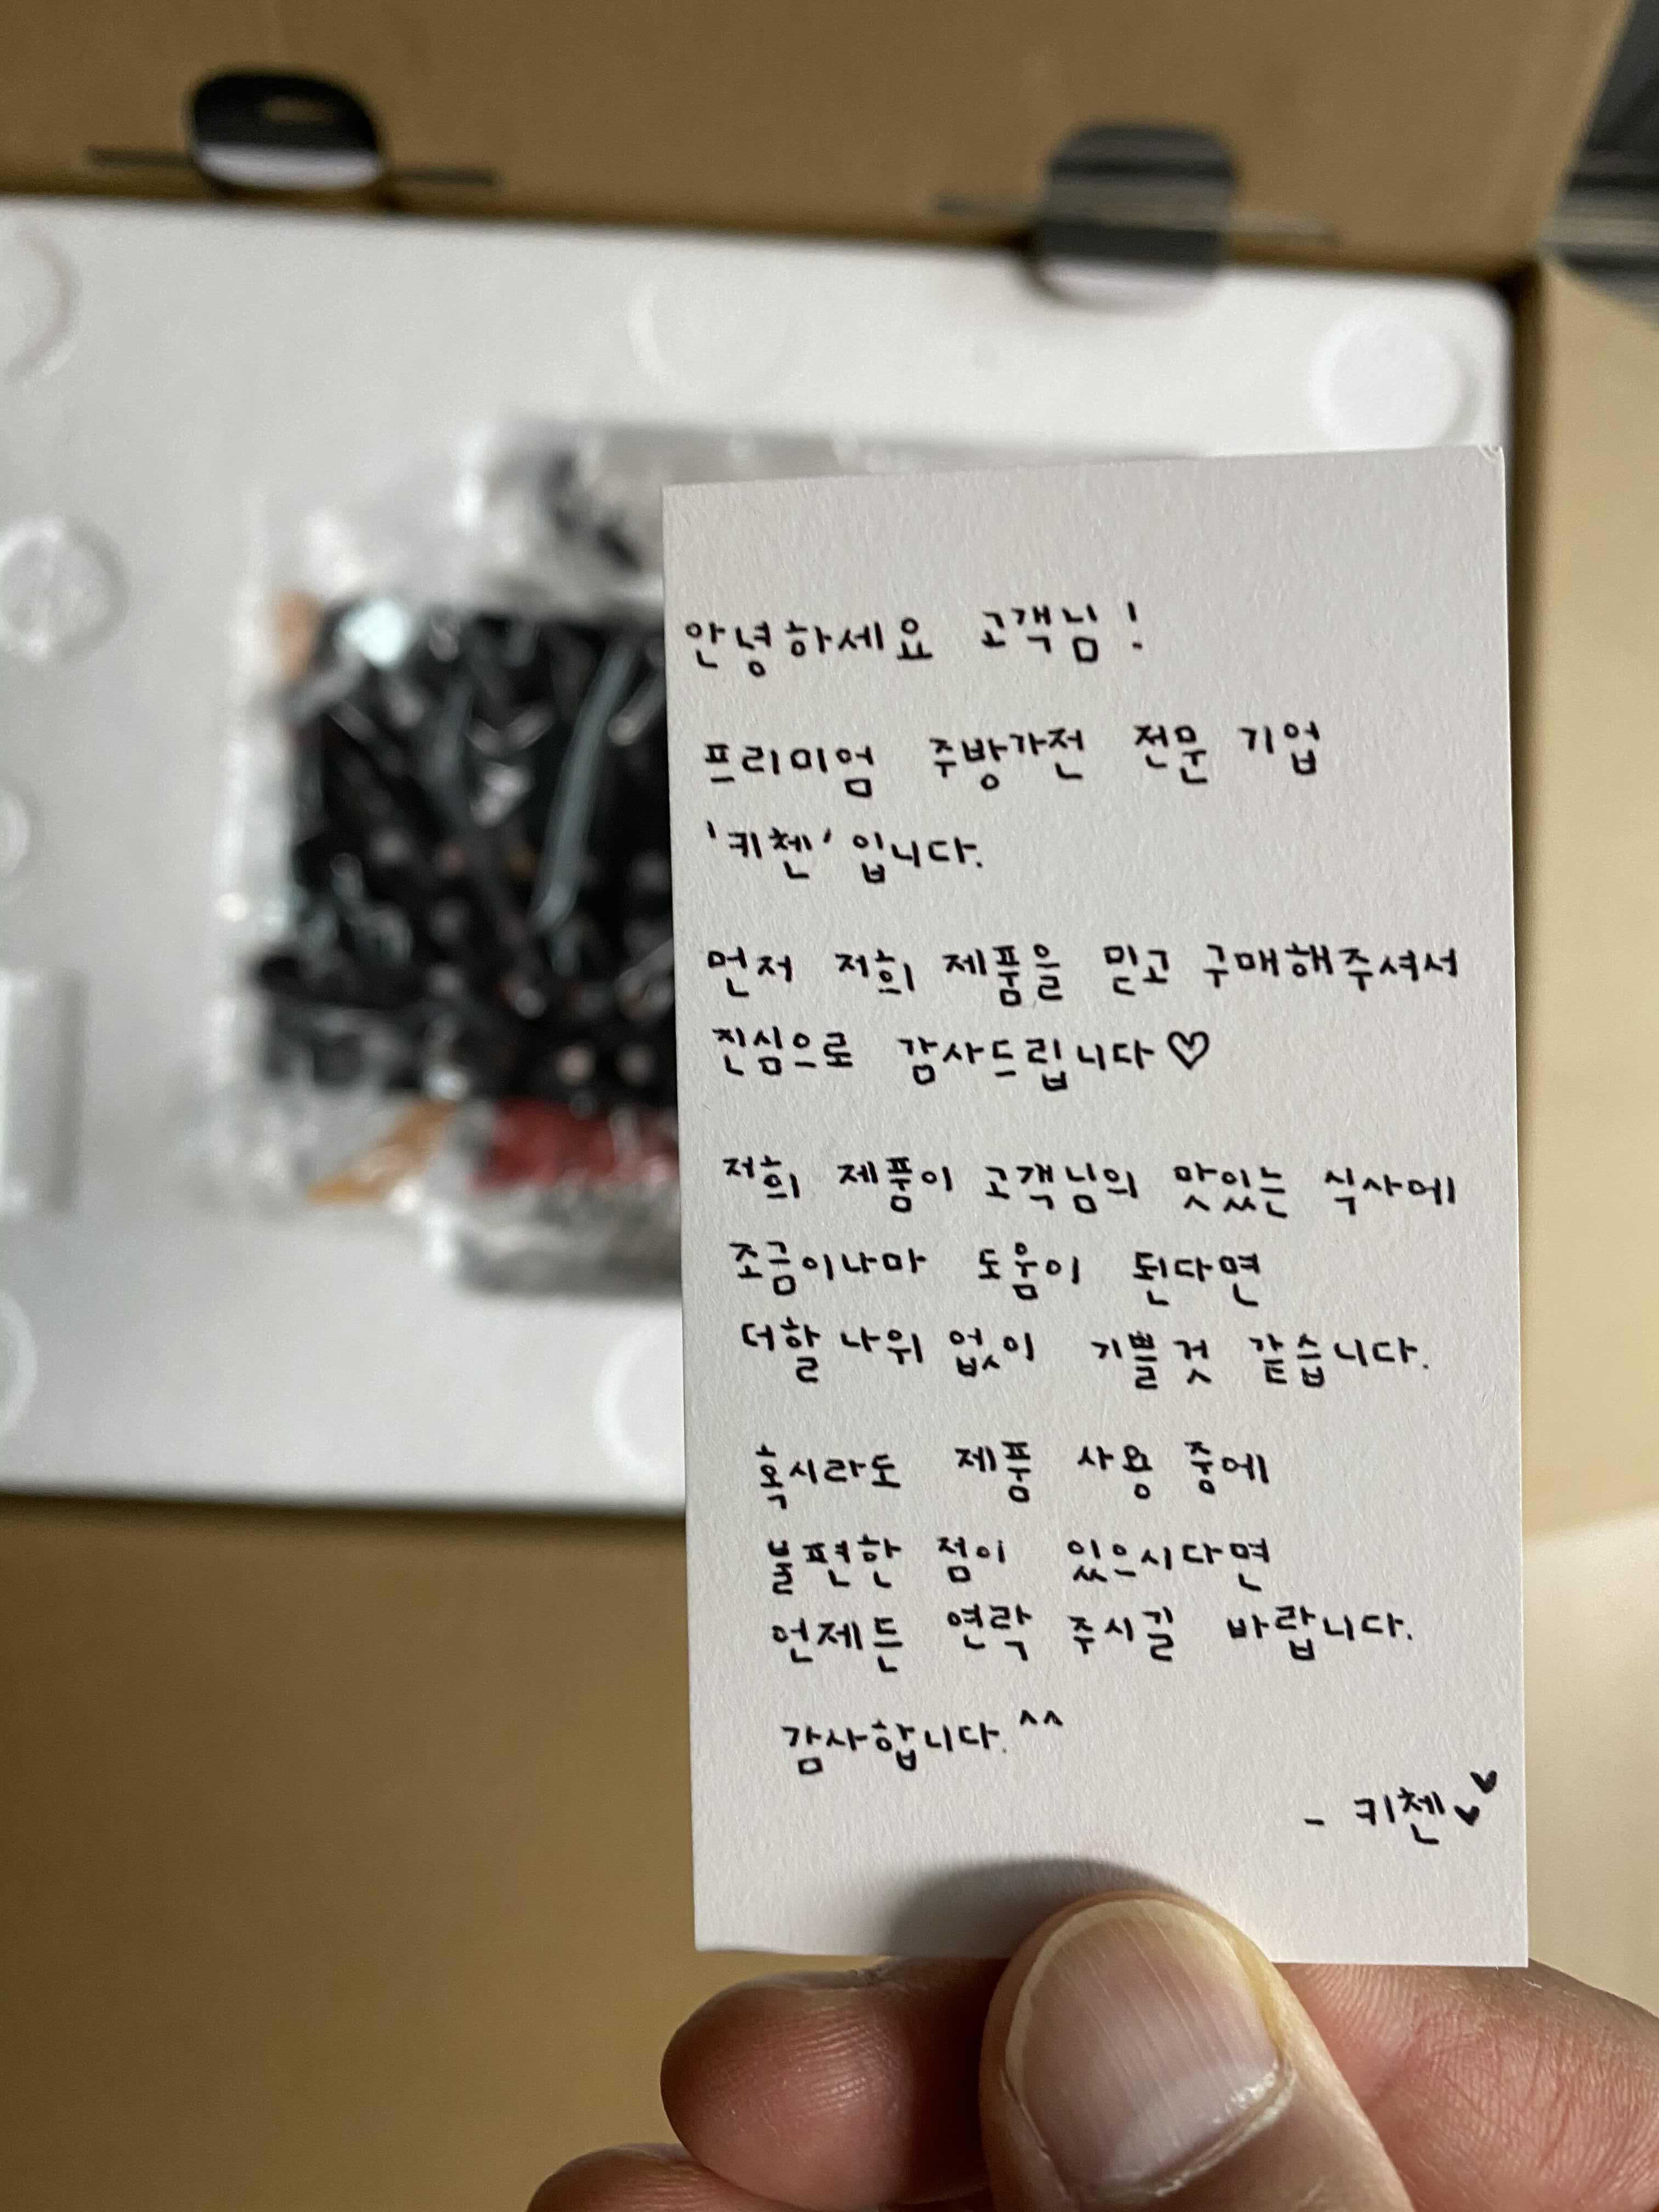 안녕하세요 고객님!
프리미엄 주방가전 전문 기업
'키첸' 입니다.
먼저 저희 제품을 믿고 구매해주셔서
진심으로 감사드립니다♡
저희 제품이 고객님의 맛있는 식사에
조금이나마 도움이 된다면
더할 나위 없이 기쁠것 같습니다.
혹시라도 제품 사용 중에
불편한 점이 있으시다면
언제든 연락 주시길 바랍니다.
감사합니다.^^
- 키첸♥♥